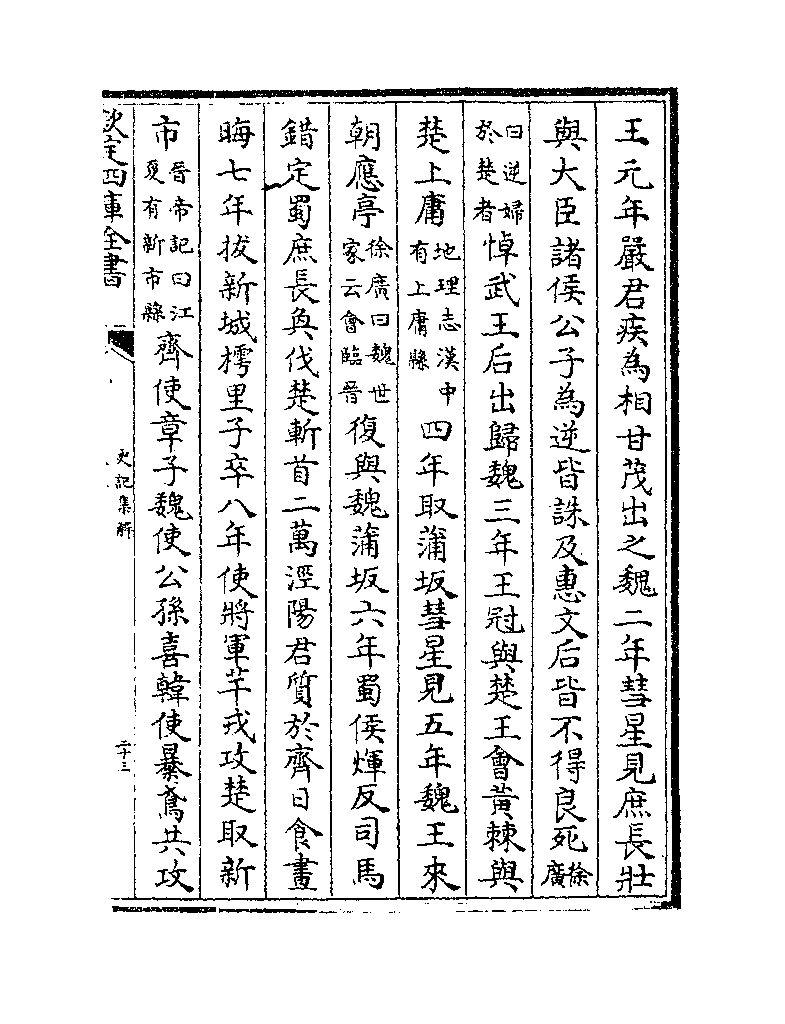 王元年嚴君疾為相甘茂出之魏二年彗星見庶長壯
與大臣諸侯公子為逆皆誅及惠文后皆不得良死徐廣
曰逆婦於楚者悼武王后出歸魏三年王冠與楚王會黃棘與
楚上庸地理志漢中有上庸縣四年取蒲坂彗星見五年魏王來
朝應亭徐廣曰魏世家云會臨晉復與魏蒲坂六年蜀侯煇反司馬
錯定蜀庶長奐伐楚斬首二萬涇陽君質於齊日食晝
晦七年拔新城樗里子卒八年使將軍芊戎攻楚取新
市晉帝記曰江夏有新市縣齊使章子魏使公孫喜韓使暴鳶共攻
欽定四庫全書
史記集解
二十三